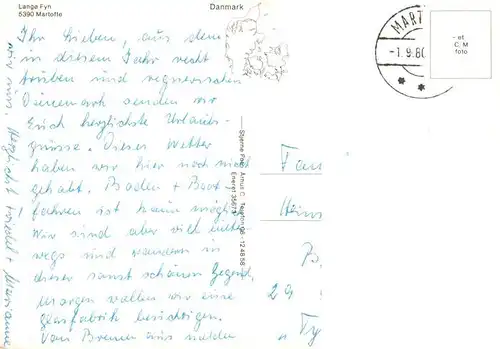 Lange Fyn
5390 Martofte
Danmark
Ihr Lieben, aus dem
in diesem Jahr recht
trüben und regnerischen
Dänemark senden wir
Euch herzlichste Urlaubs-
grüsse. Dieses Wetter
haben wir hier noch nicht
gehabt. Baden + Boot-
fahren ist kaum möglich.
Wir sind aber viel unter-
wegs und wandern in
dieser sonst schönen Gegend.
Morgen wollen wir eine
Glasfabrik besichtigen.
Von Bremen aus melden
wir uns. Herzlichst + Marianne
Stjerne Foto, Århus C. Telefon 06 - 12 48 58
Eneret 35673
MART
-1.9.80
- et
C. M
foto
Fam
Hein
29